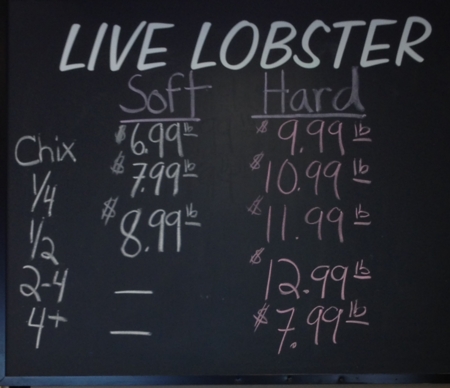 LIVE LOBSTER
Soft Hard
Chix $6.99 lb $9.99 lb
1/4 $7.99 lb $10.99 lb
1/2 $8.99 lb $11.99 lb
2-4 — $12.99 lb
4+ — $7.99 lb